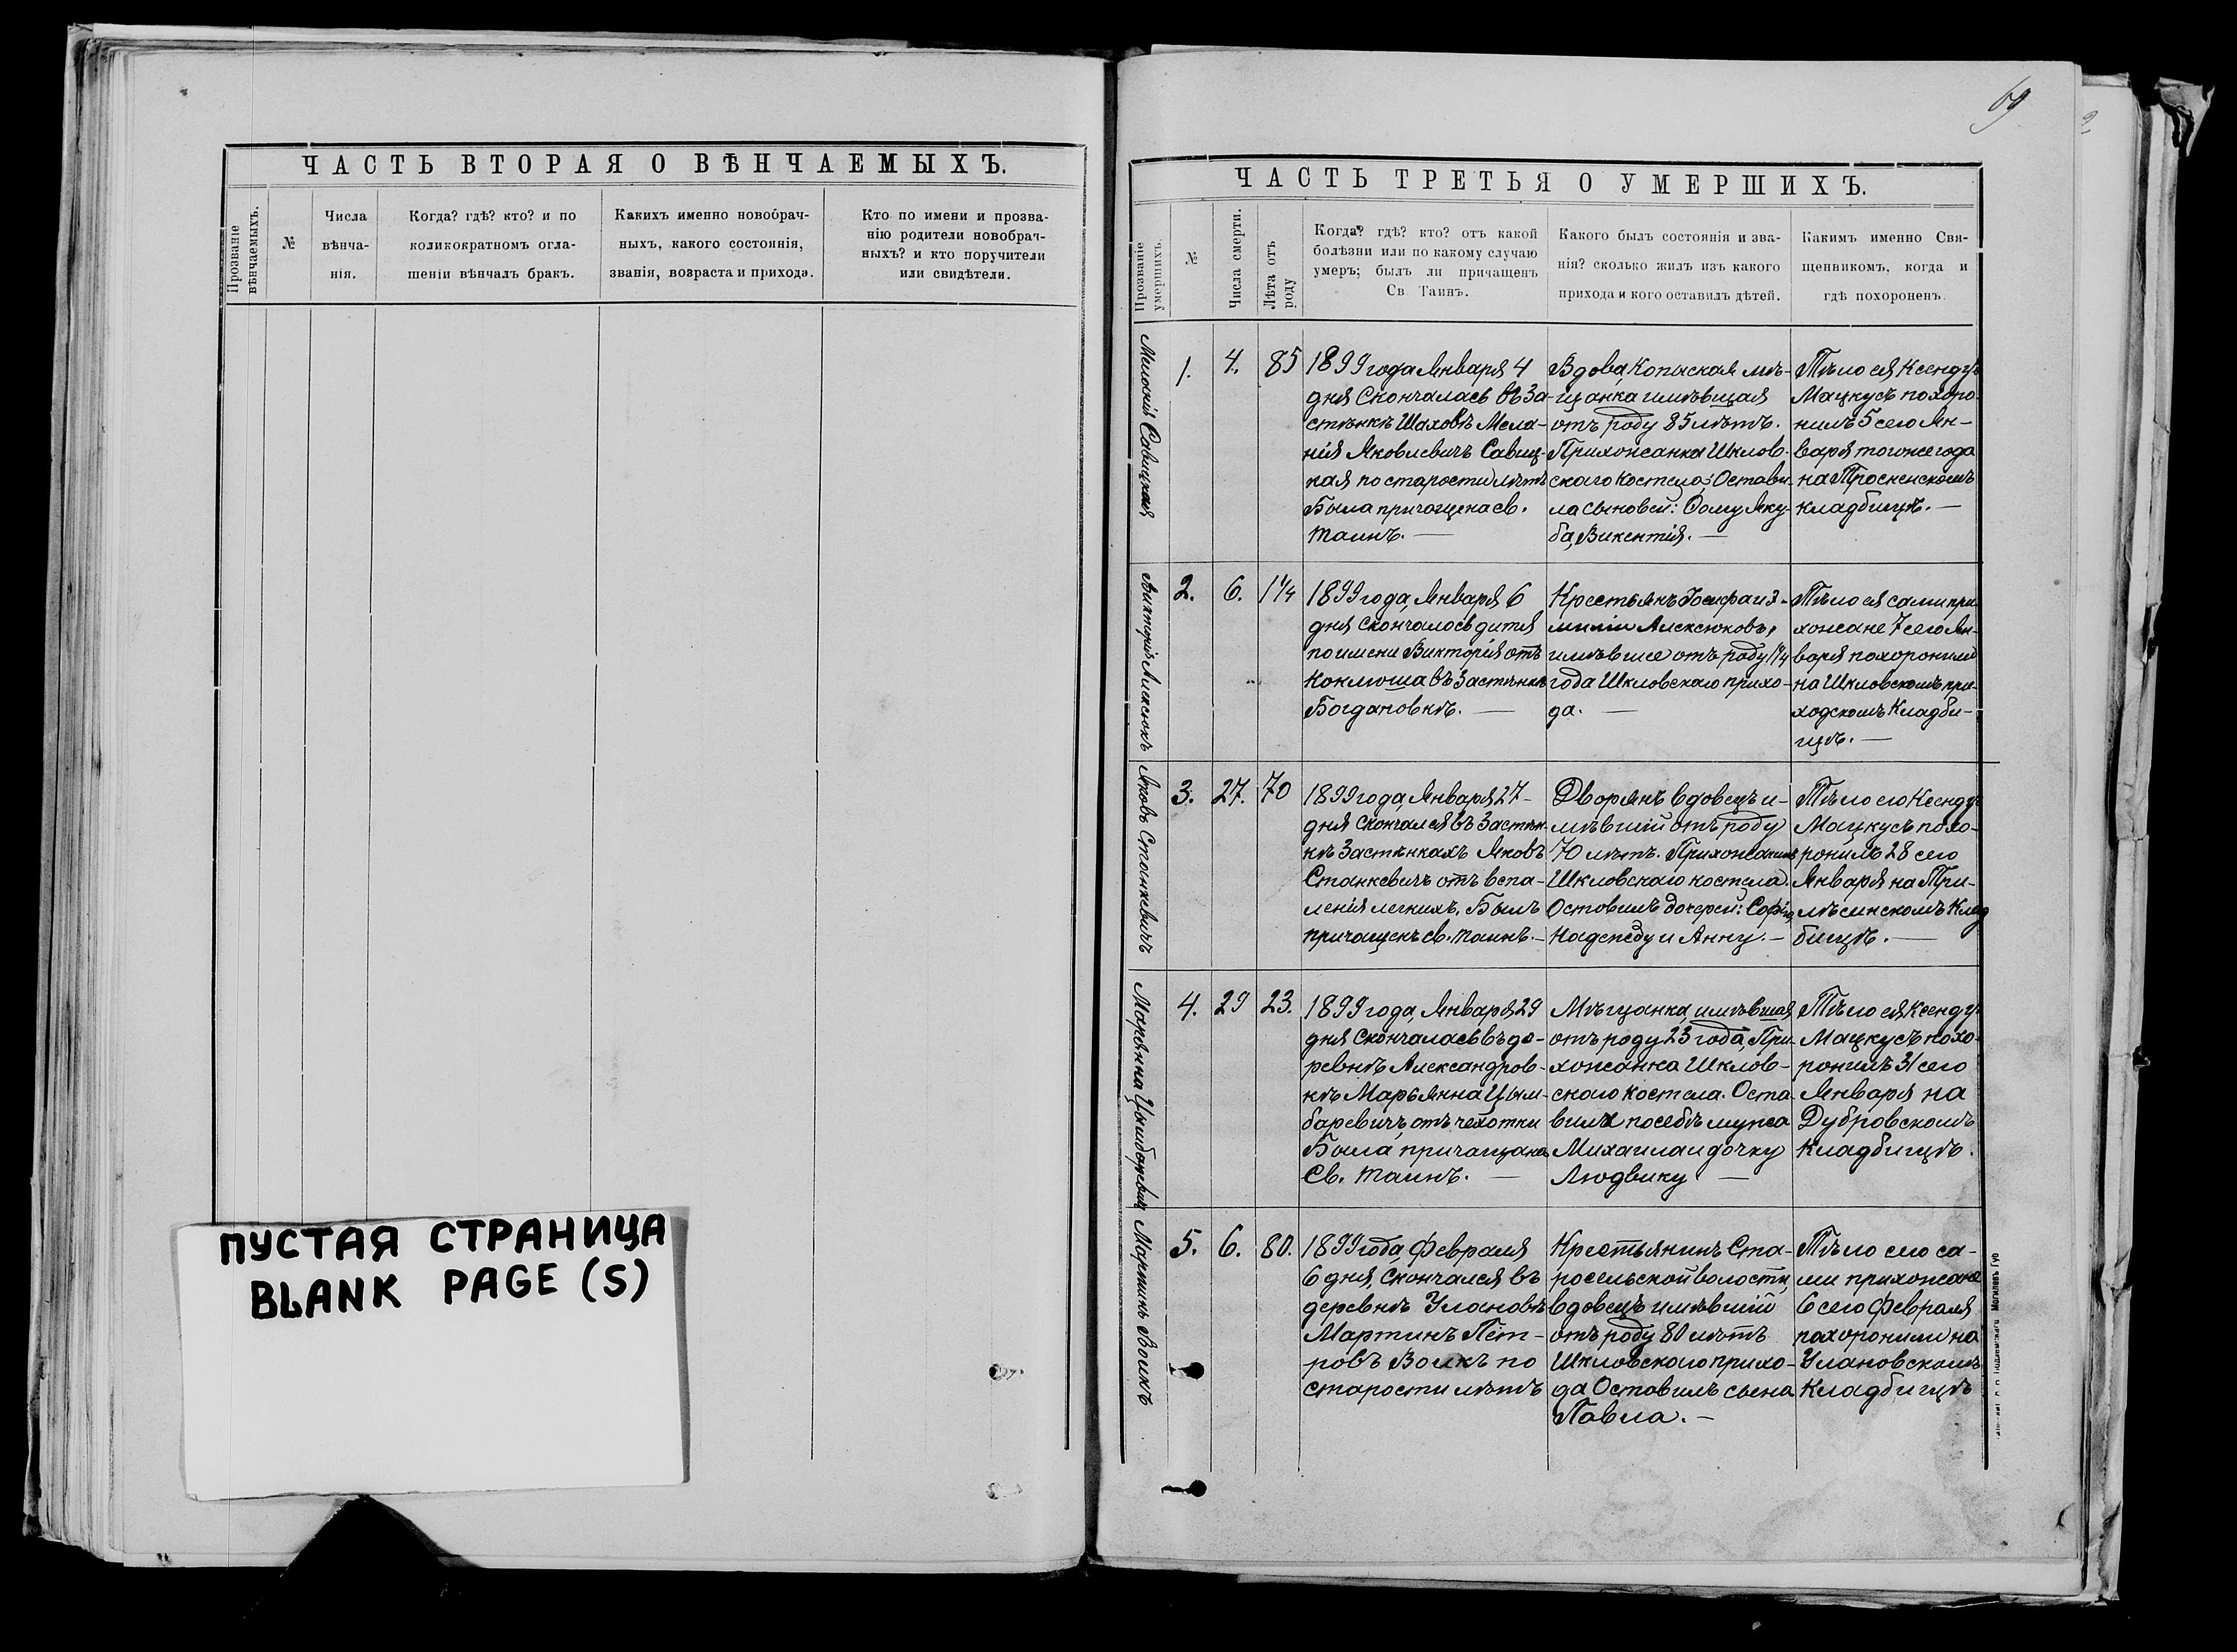 ЧАСТЬ ВТОРАЯ О ВѢНЧАЕМЫХЪ.
Прозваніе
вѣнчаемыхъ.
№
Числа
вѣнча-
нія.
Когда? гдѣ? кто? и по
коликократномъ огла-
шеніи вѣнчалъ бракъ.
Какихъ именно новобрач-
ныхъ, какого состоянія,
званія, возраста и прихода.
Кто по имени и прозва-
нію родители новобрач-
ныхъ? и кто поручители
или свидѣтели.
ПУСТАЯ СТРАНИЦА
BLANK PAGE (S)
69
ЧАСТЬ ТРЕТЬЯ О УМЕРШИХЪ.
Прозваніе
умершихъ.
№
Числа смерти.
Лѣта отъ
роду
Когда? гдѣ? кто? отъ какой
болѣзни или по какому случаю
умеръ; былъ ли причащенъ
Св. Таинъ.
Какого былъ состоянія и зва-
нія? сколько жилъ изъ какого
прихода и кого оставилъ дѣтей.
Какимъ именно Свя-
щенникомъ, когда и
гдѣ похороненъ.
Меланія Савицкая
1.
4.
85
1899 года Января 4
дня Скончалась въ За-
стѣнкѣ Шаховѣ Мела-
нія Яковлевичъ Савиц-
кая по старости лѣтъ
Была причащена св.
таинъ. —
Вдова, Копыская мѣ-
щанка имѣвщая
отъ роду 85 лѣтъ.
Прихожанка Шклов-
скаго Костела; Остави-
ла сыновей: Фому Яку-
ба, Викентія. —
Тѣло ея Ксендзъ
Мацкусъ похоро-
нилъ 5 сего Ян-
варя тогоже года
на Тросненскомъ
кладбищѣ. —
Викторія Алексюкъ
2.
6.
1 1/4
1899 года, Января 6
дня скончалось дитя
по имени Викторія отъ
Коклюша въ Застѣнкѣ
Богдановкѣ. —
Крестьянъ Іосифа и Э-
миліи Алексюковъ,
имѣвшее отъ роду 1 1/4
года Шкловскаго прихо-
да. —
Тѣло ея сами при
хожане 7 сего Ян-
варя похоронили
на Шкловскомъ при-
ходскомъ Кладби-
щѣ. —
Яковъ Станкевичъ
3.
27.
70
1899 года, Января 27 -
дня скончался въ Застѣн-
кѣ Застѣнкахъ Яковъ
Станкевичъ отъ вспа-
ленія легкихъ. Былъ
причащенъ св. таинъ. —
Дворянъ вдовецъ и-
мѣвшій отъ роду
70 лѣтъ. Прихожанинъ
Шкловскаго костела.
Оставилъ дочерей: Софію,
Надежду и Анну. —
Тѣло его Ксендзъ
Мацкусъ похо-
ронилъ 28 сего
Января на При-
лѣсинскомъ Клад
бищѣ. —
Марянна Цымбаревичъ
4.
29
23.
1899 года Января 29
дня Скончалась въ де-
ревнѣ Александров-
кѣ Марьянна Цым-
баревичъ, отъ чехотки
Была причащена
Св. таинъ. —
Мѣщанка, имѣвшая
отъ роду 23 года, При-
хожанка Шклов-
скаго костела. Оста
вила посебѣ мужа
Михаила и дочку
Людвику —
Тѣло ея Ксендзъ
Мацкусъ похо-
ронилъ 31 сего
Января на
Дубровскомъ
Кладбищѣ.
Мартинъ Волкъ
5.
6.
80.
1899 года, Февраля
6 дня, Скончался въ
деревнѣ Улановѣ
Мартинъ Пет-
ровъ Волкъ по
старости лѣтъ
Крестьянинъ Ста-
росельской волости,
вдовецъ имѣвшій
отъ роду 80 лѣтъ
Шкловскаго прихо-
да Оставилъ сына
Павла. —
Тѣло его са-
ми прихожане
6 сего Февраля
похоронили на
Улановскомъ
Кладбищѣ
Могилевъ Губ